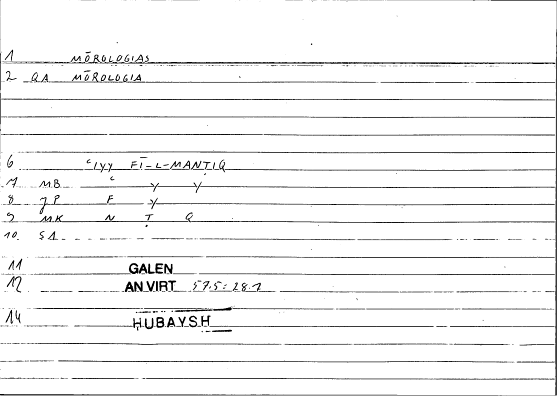 1 MŌROLOGIAS
2 QA MŌROLOGIA
6 ʿIYY FĪ-L-MANṬIQ
7 MB ʿ Y Y
8 JP F Y
9 MK N Ṭ Q
10. SA
11 GALEN
12 AN VIRT 57.5: 28.1
14 HUBAYSH